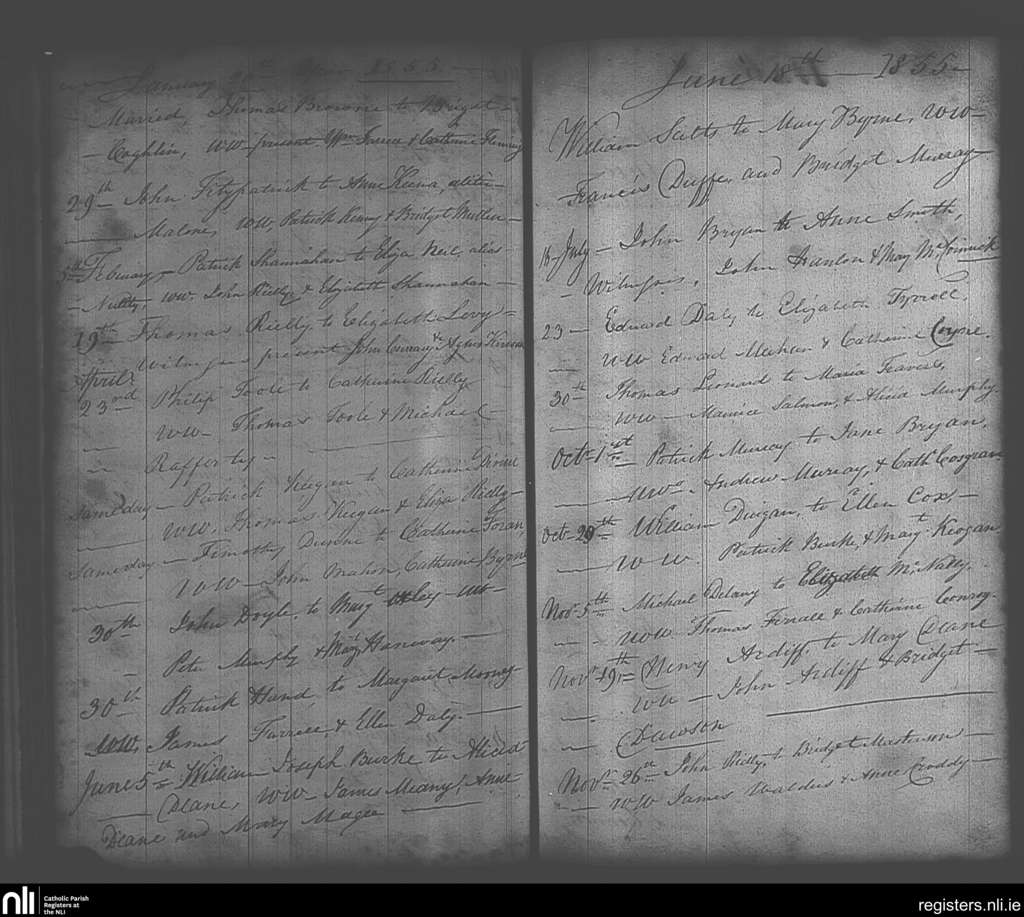 January 20th 1855
Married, Thomas Browne to Bridget
Coghlin, WW present Wm & Catherine Fleming
29th John Fitzpatrick to Anne Keena, alias
Malone, WW, Patrick Kenny & Bridget Mullen
5th February Patrick Shannahan to Eliza Neil, alias
Nultty WW. John Rielly & Elizabeth Shannahan
19th Thomas Rielly to Elizabeth Levy
Witnesses present John Curray & Agnes
April
23rd Philip Toole to Catherine Rielly
WW Thomas Toole & Michael
Rafferty
Same day Patrick Keegan to Catherine Dinne
WW. Thomas Keegan & Eliza Rielly
Same day Timothy Dunne to Catherine Foran,
WW John Mahon, Catherine Byrne
30th John Doyle, to Margt
Peter Murphy & Mary Hanway
30th Patrick Hand to Margaret Mooney
WW, James Farrell, & Ellen Daly
June 5th William Joseph Burke to Alicia
Deane, WW James Meany, Anne
Deane and Mary Magee
June 18th 1855
William Scutts to Mary Byrne, WW
Francis Duffe, and Bridget Murray
18 July John Bryan to Anne Smith,
Witnesses, John Hanlon & Mary McCormick
23 Edward Daly to Elizabeth Tyrrell,
WW Edward Meehan & Catherine Coyne
30th Thomas Leonard to Maria Favier,
WW Maurice Salmon, & Alicia Murphy
Octr 1st Patrick Murray to Jane Bryan,
WWs. Andrew Murray, & Cathe Cosgran
Oct 29th William Duigan, to Ellen Cox,
WW. Patrick Burke, & Mary Keogan
Novr 5th Michael Delany to Elizabeth McNally,
WW Thomas Ferrall & Catherine Conroy
Novr 19th Henry Ardiff, to Mary Deane
WW John Ardiff & Bridget
Dawson
Novr 26th John Rielly to Bridget Masterson
WW James Waldus & Anne Croddy
nli
Catholic Parish
Registers at
the NLI
registers.nli.ie